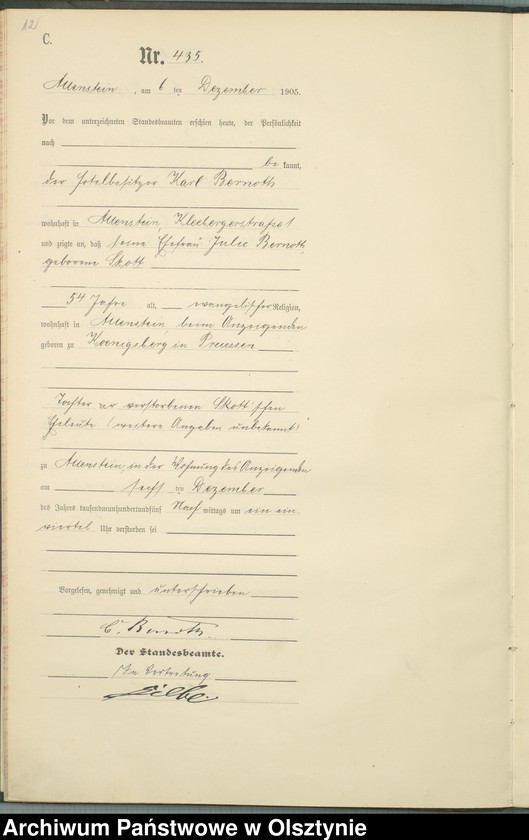 12
C.
Nr. 435.
Allenstein, am 6 ten Dezember 1905.
Vor dem unterzeichneten Standesbeamten erschien heute, der Persönlichkeit
nach
be kannt,
der Hotelbesitzer Karl Bernoth
wohnhaft in Allenstein, Kleebergerstraße 1
und zeigte an, daß seine Ehefrau Julie Bernoth,
geborene Skott
54 Jahre alt, evangelischer Religion,
wohnhaft in Allenstein beim Anzeigenden
geboren zu Koenigsberg in Preussen
Tochter der verstorbenen Skott'schen
Eheleute (weitere Angaben unbekannt)
zu Allenstein, in der Wohnung des Anzeigenden
am sechs ten Dezember
des Jahres tausendneunhundertundfünf Nach mittags um ein ein
viertel Uhr verstorben sei
Vorgelesen, genehmigt und unterschrieben
C. Bernoth.
Der Standesbeamte.
In Vertretung
Archiwum Państwowe w Olsztynie